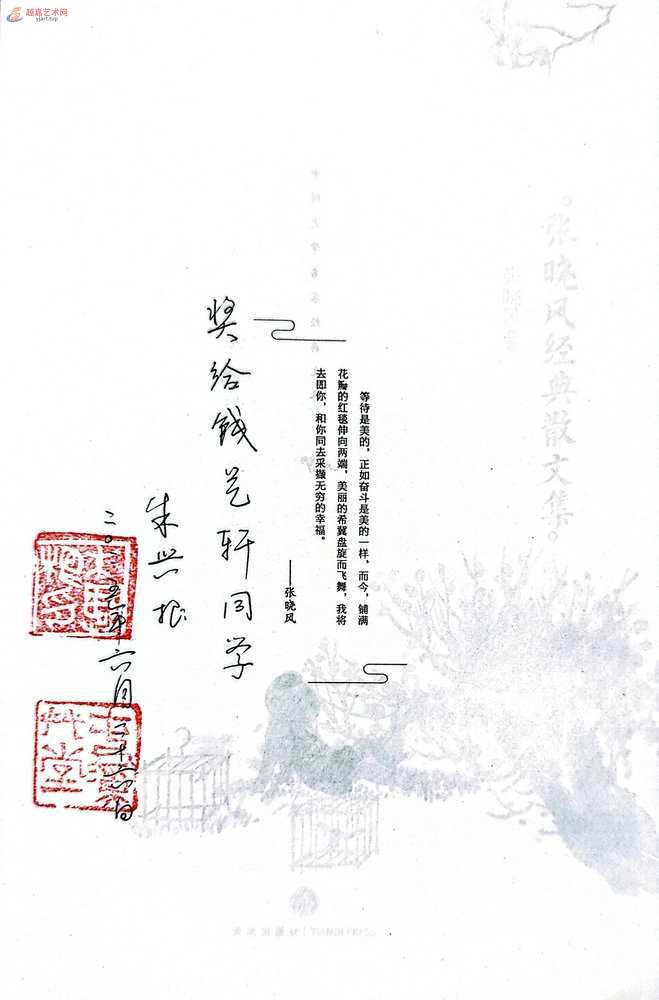 越嘉艺术网
yjart.top
张晓风经典散文集
等待是美的，正如奋斗是美的一样，而今，铺满
花瓣的红毯伸向两端，美丽的希冀盘旋而飞舞，我将
去即你，和你同去采撷无穷的幸福。
——张晓风
奖给钱艺轩同学
朱兴根
二〇一五年六月二十六日